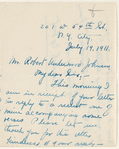 201 W 54th St,
N.Y. City-
July 19, 1911.
Mr Robert Underwood Johnson
My dear Sir,-
This morning I
am in receipt of your letter
in reply to a
accompanying some
verses. Please let me
thank you for the
kindness of your